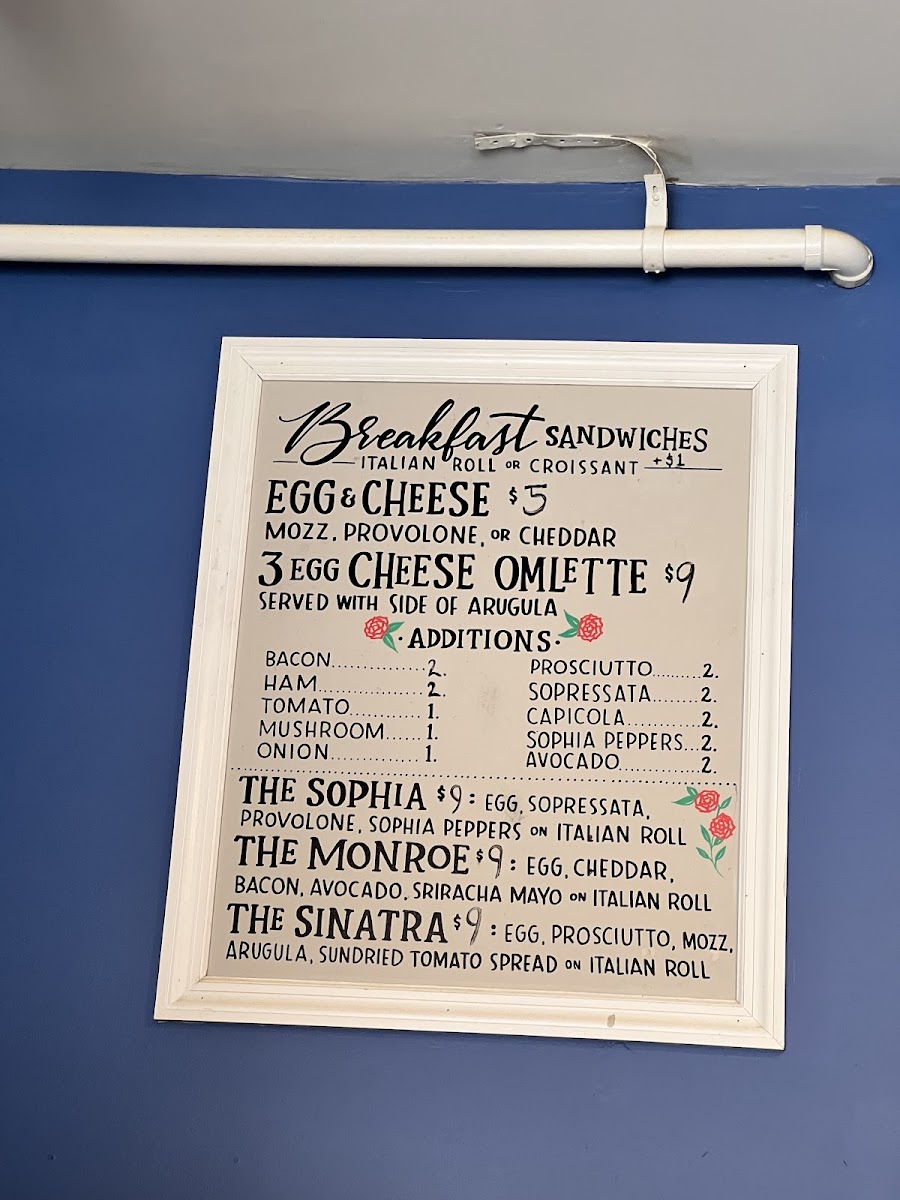 Breakfast SANDWICHES
ITALIAN ROLL OR CROISSANT +$1
EGG & CHEESE $5
MOZZ, PROVOLONE, OR CHEDDAR
3 EGG CHEESE OMLETTE $9
SERVED WITH SIDE OF ARUGULA
· ADDITIONS ·
BACON..............2.
HAM................2.
TOMATO............1.
MUSHROOM......1.
ONION..............1.
PROSCIUTTO.........2.
SOPRESSATA.........2.
CAPICOLA.............2.
SOPHIA PEPPERS...2.
AVOCADO..............2.
THE SOPHIA $9: EGG, SOPRESSATA,
PROVOLONE, SOPHIA PEPPERS ON ITALIAN ROLL
THE MONROE $9: EGG, CHEDDAR,
BACON, AVOCADO, SRIRACHA MAYO ON ITALIAN ROLL
THE SINATRA $9: EGG, PROSCIUTTO, MOZZ,
ARUGULA, SUNDRIED TOMATO SPREAD ON ITALIAN ROLL